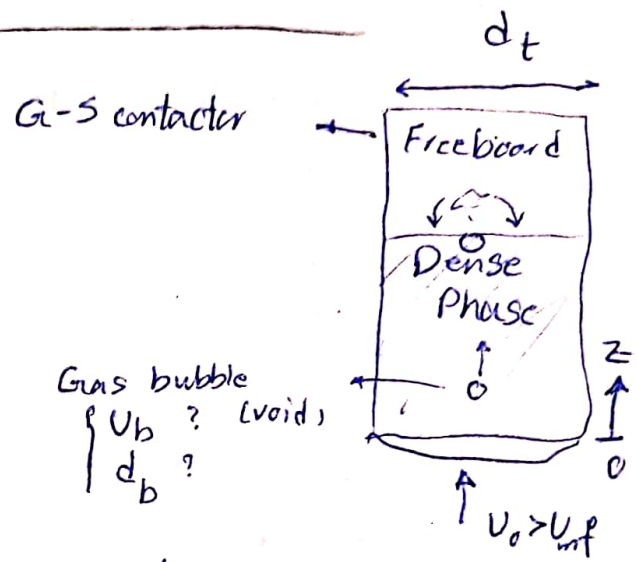 d_t
G-S contactor
Freeboard
Dense
Phase
Z
Gas bubble
U_b ? (void)
d_b ?
0
U_o > U_mf